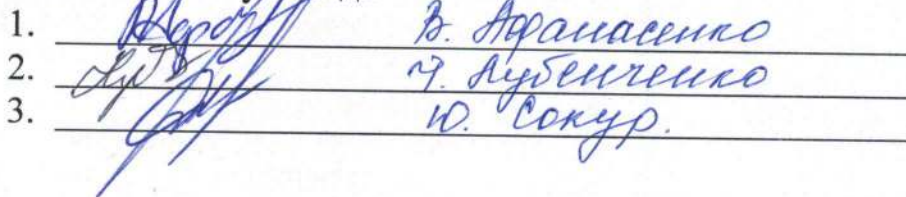 1. В. Афанасенко
2. Лубенченко
3. Ю. Сокур.